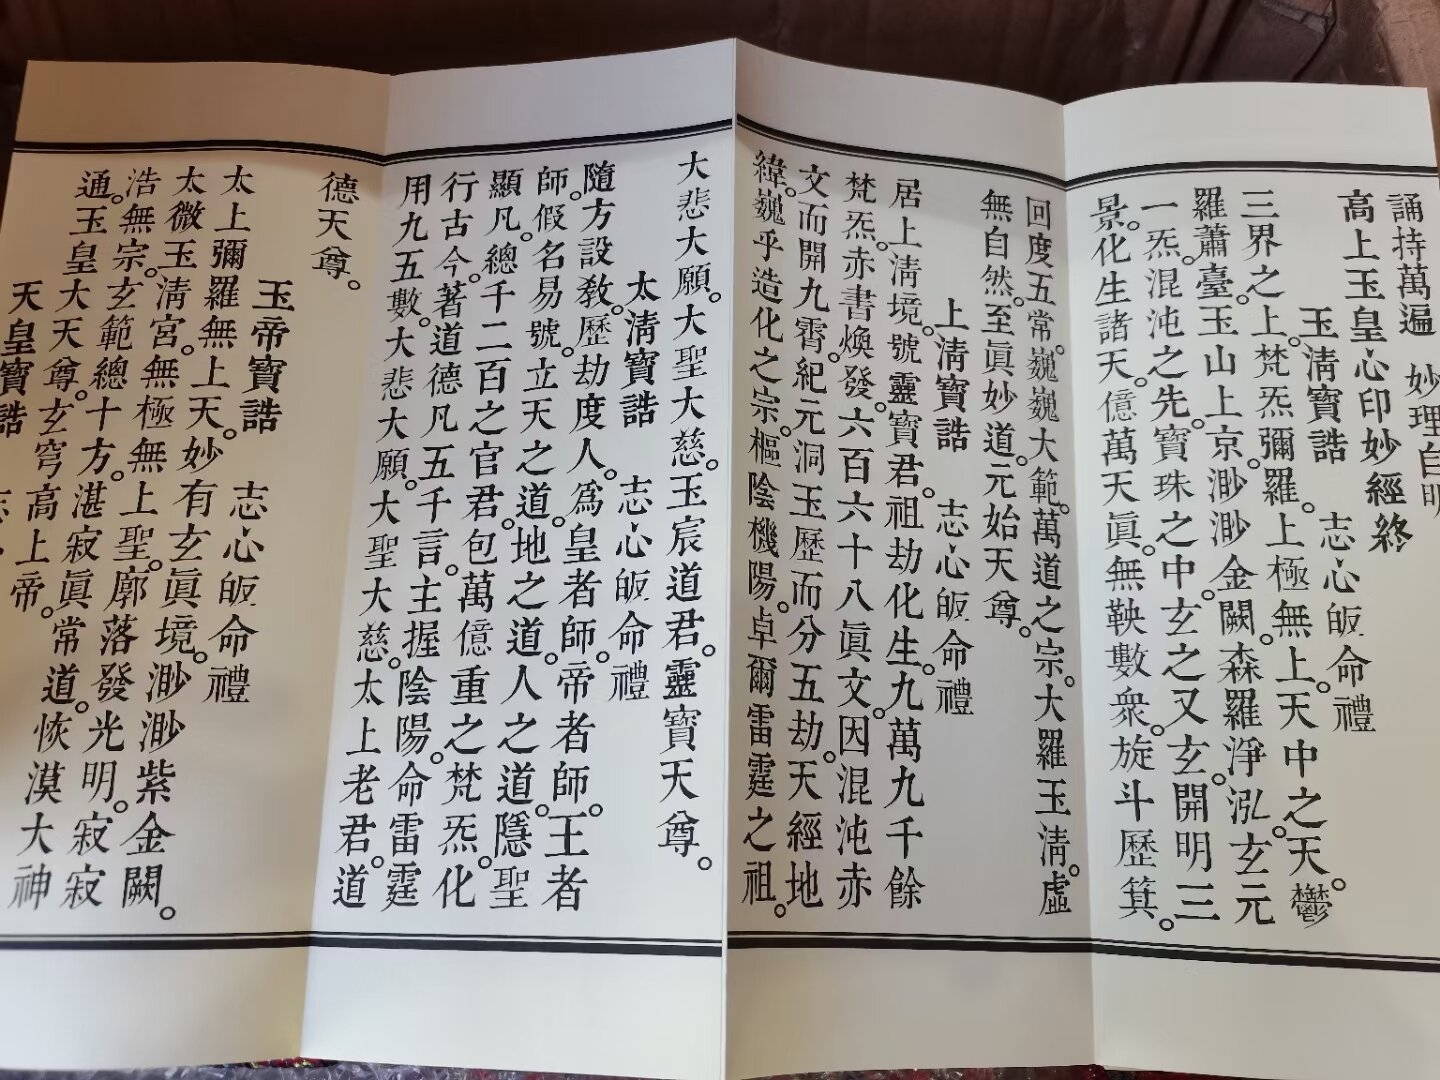 誦持萬遍　妙理自明
高上玉皇心印妙經終
玉淸寶誥　志心皈命禮
三界之上。梵炁彌羅。上極無上。天中之天。鬱
羅蕭臺。玉山上京。渺渺金闕。森羅淨泓。玄元
一炁。混沌之先。寶珠之中。玄之又玄。開明三
景。化生諸天。億萬天眞。無鞅數衆。旋斗歷箕。
回度五常。巍巍大範。萬道之宗。大羅玉淸。虛
無自然。至眞妙道。元始天尊。
上淸寶誥　志心皈命禮
居上淸境。號靈寶君。祖劫化生。九萬九千餘
梵炁。赤書煥發。六百六十八眞文。因混沌赤
文而開九霄。紀元洞玉歷而分五劫。天經地
緯。巍乎造化之宗。樞陰機陽。卓爾雷霆之祖。
大悲大願。大聖大慈。玉宸道君。靈寶天尊。
太淸寶誥　志心皈命禮
隨方設敎。歷劫度人。爲皇者師。帝者師。王者
師。假名易號。立天之道。地之道。人之道。隱聖
顯凡。總千二百之官君。包萬億重之梵炁。化
行古今。著道德凡五千言。主握陰陽。命雷霆
用九五數。大悲大願。大聖大慈。太上老君。道
德天尊。
玉帝寶誥　志心皈命禮
太上彌羅無上天。妙有玄眞境。渺渺紫金闕。
太微玉淸宮。無極無上聖。廓落發光明。寂寂
浩無宗。玄範總十方。湛寂眞常道。恢漠大神
通。玉皇大天尊。玄穹高上帝。
天皇寶誥　志心